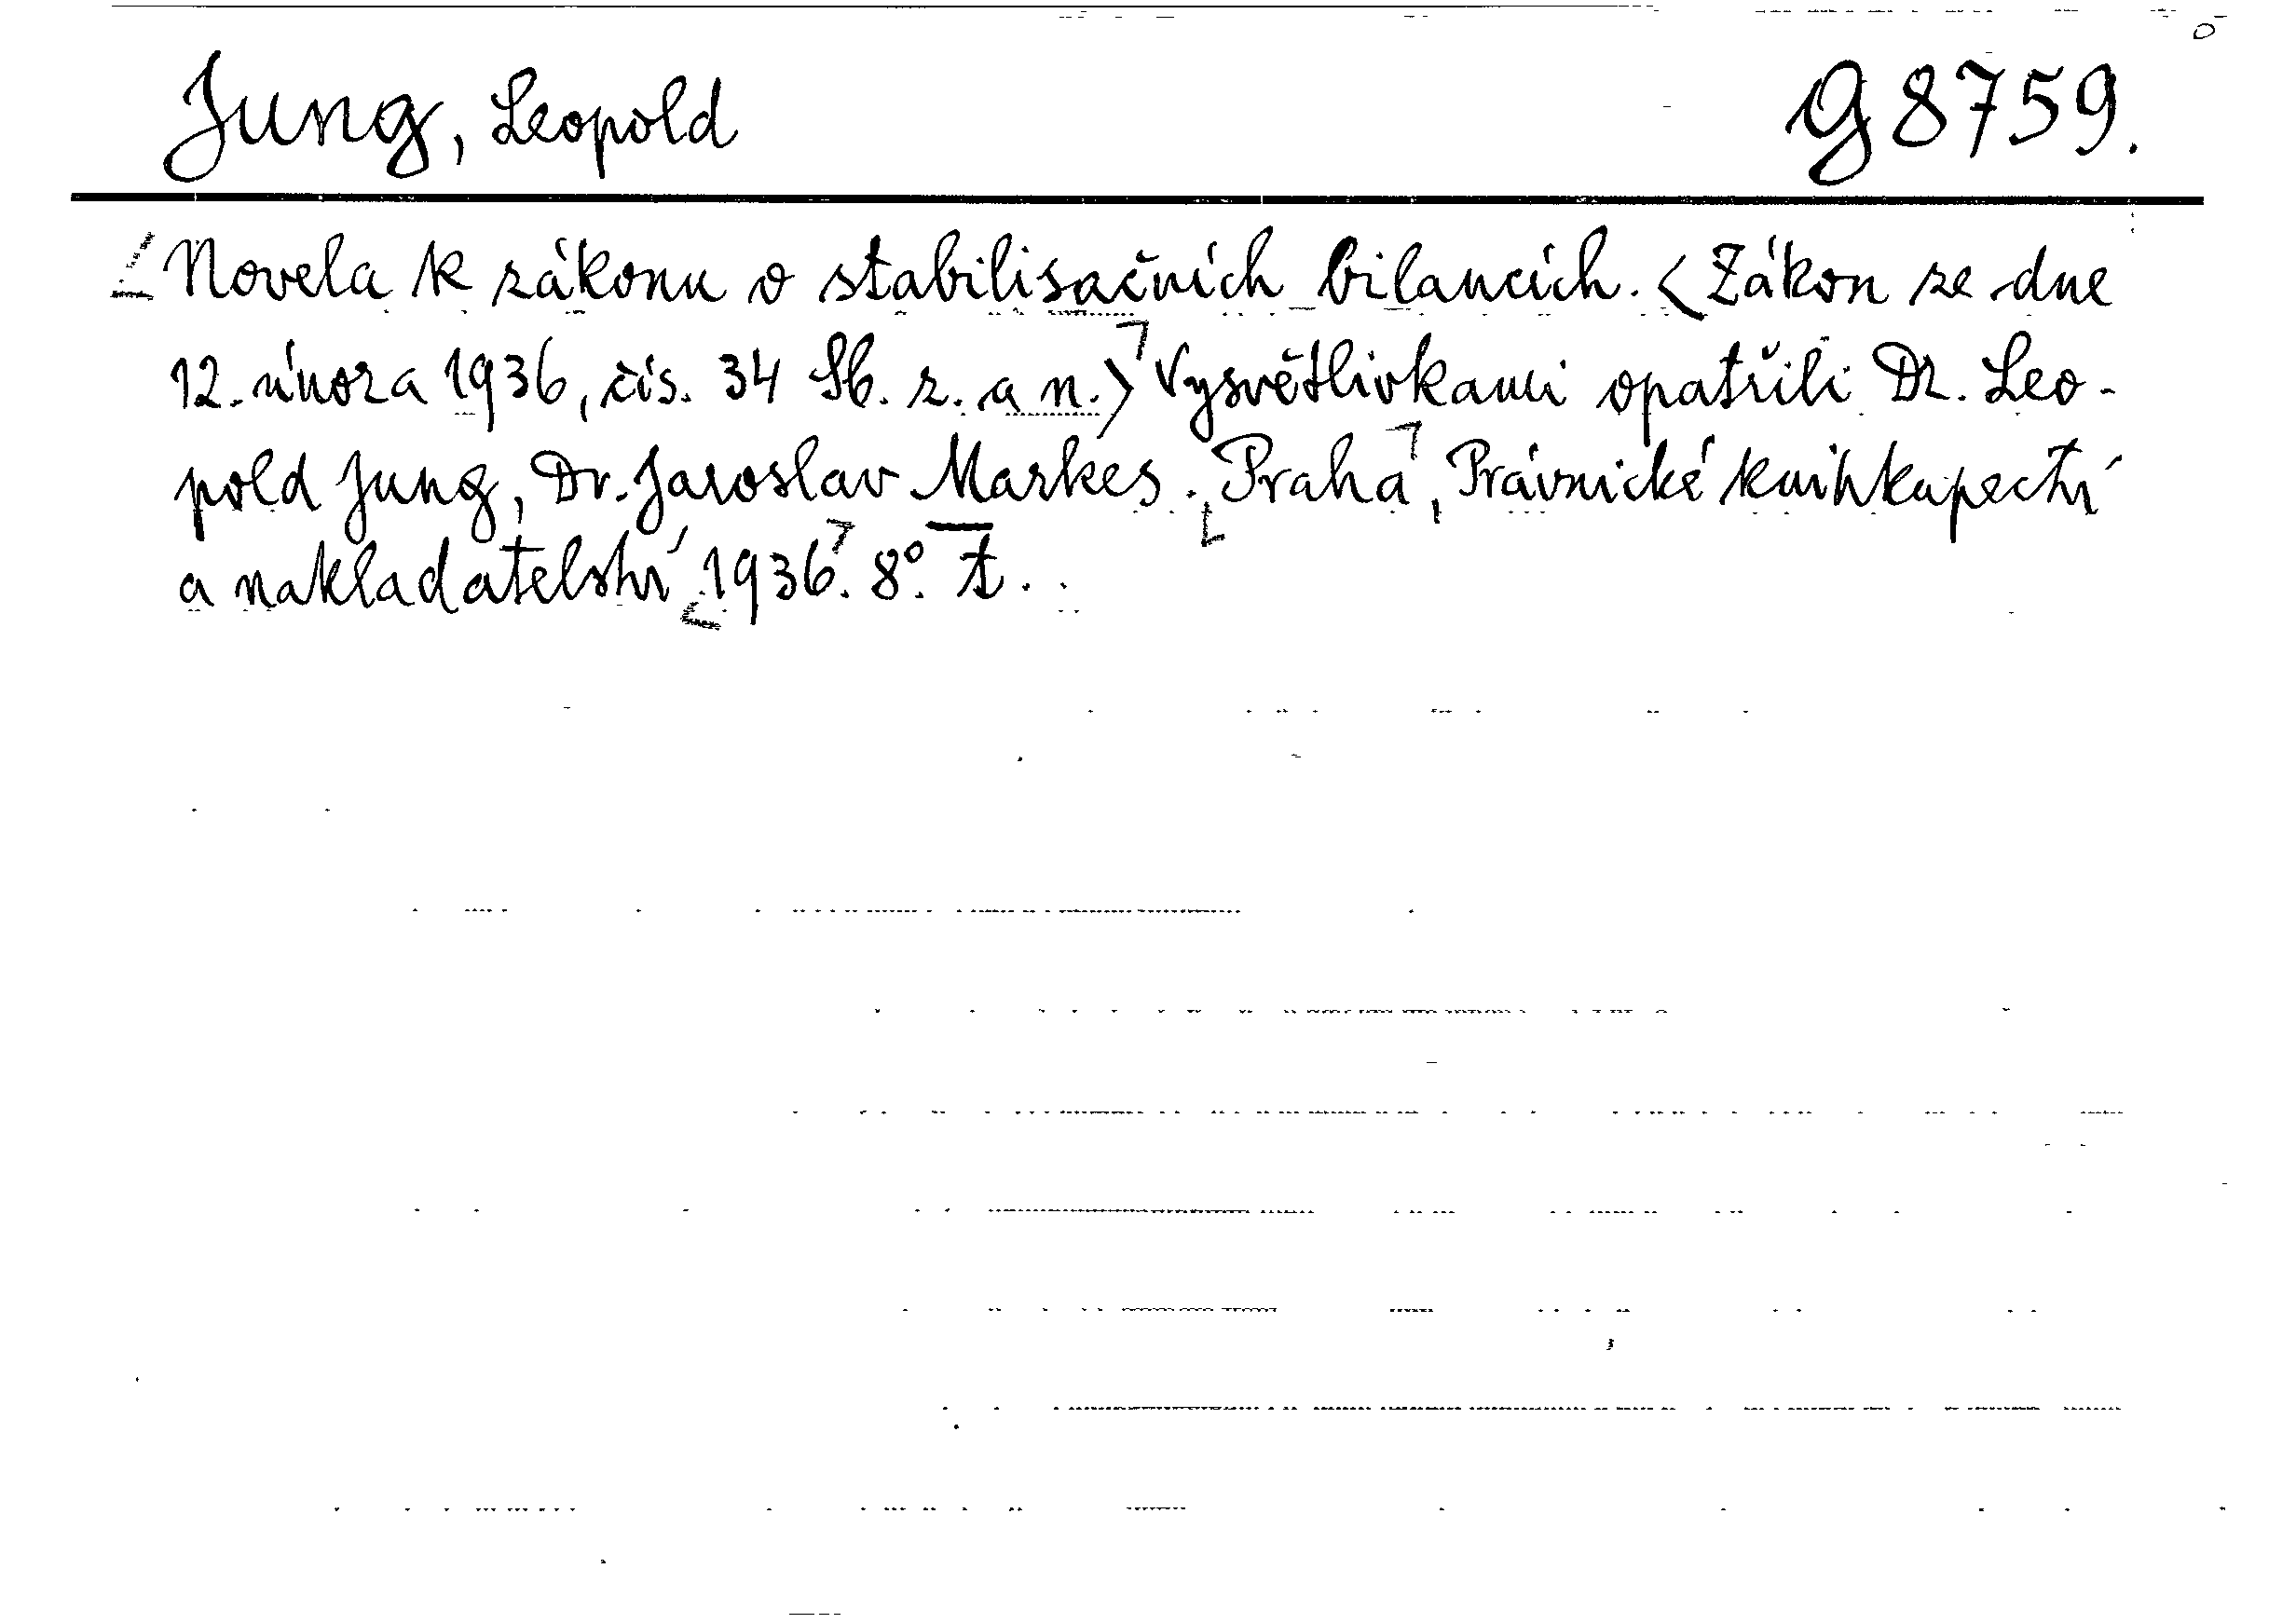 Jung, Leopold G 8759.
Novela k zákonu o stabilisačních bilancích. <Zákon ze dne
12. února 1936, čís. 34 Sb. z. a n.> Vysvětlivkami opatřili Dr. Leo-
pold Jung, Dr. Jaroslav Markes. Praha, Právnické knihkupectví
a nakladatelství 1936. 8°.